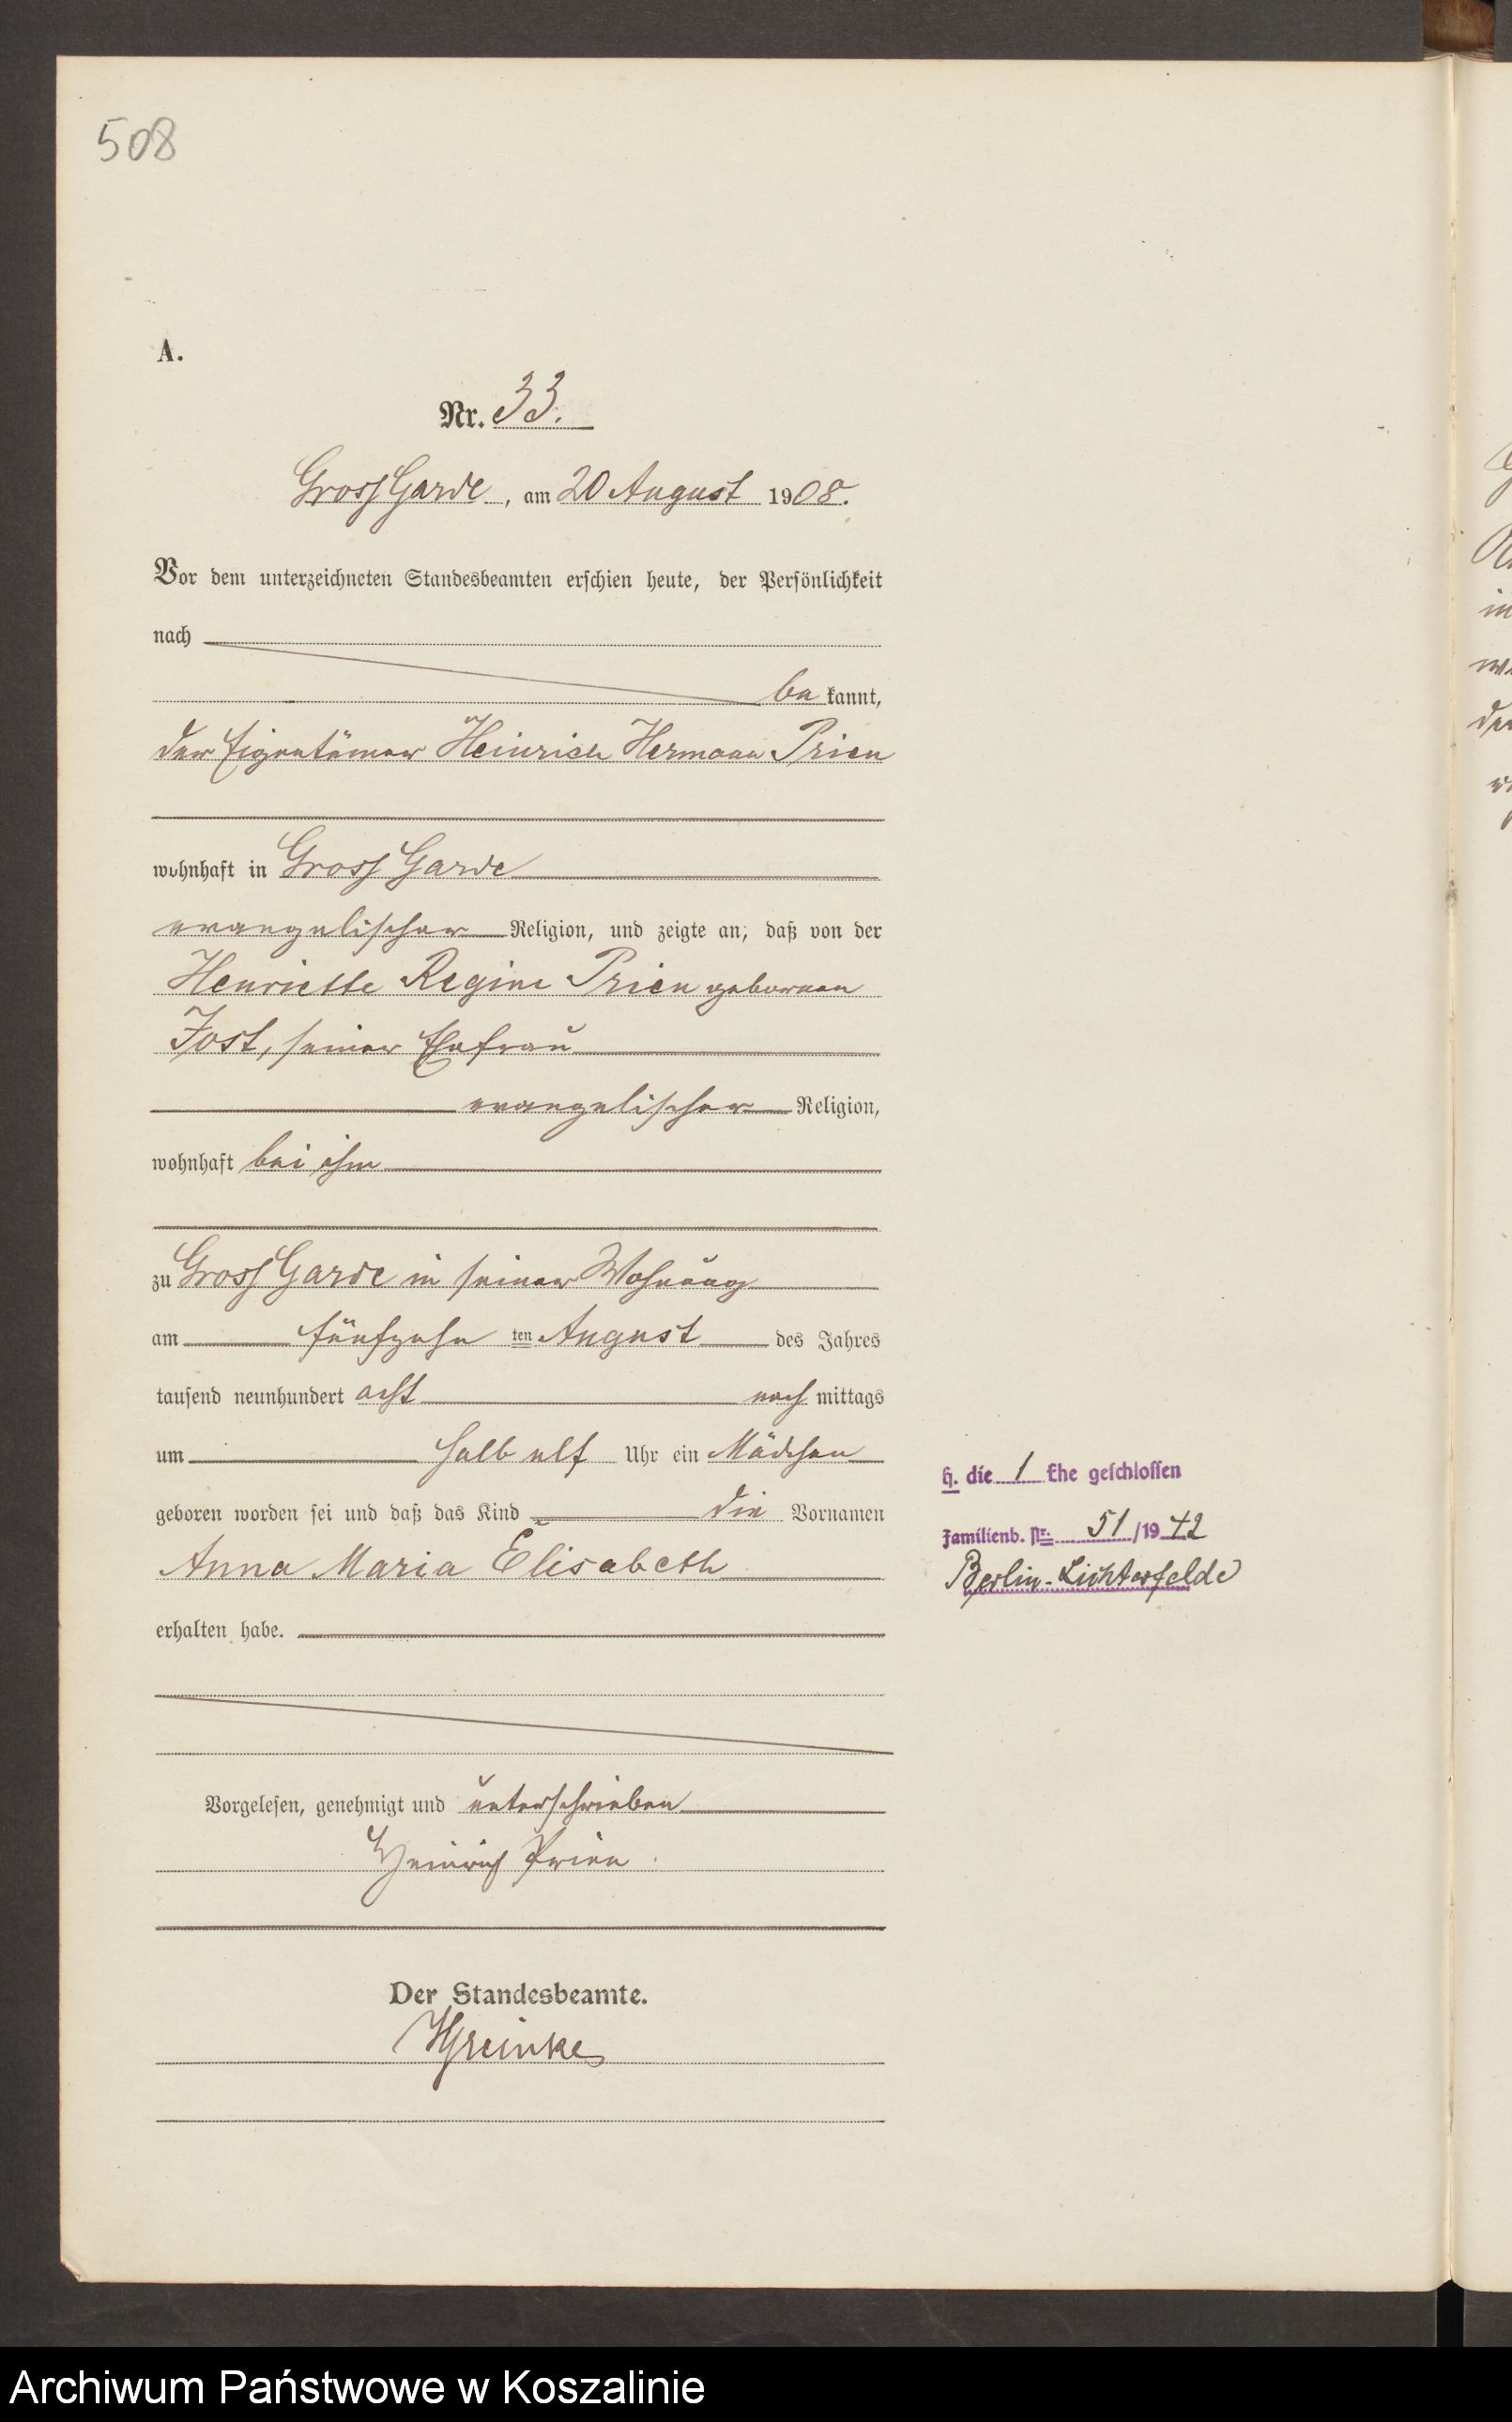 508
A.
Nr. 33.
Gross Garde, am 20 August 1908.
Vor dem unterzeichneten Standesbeamten erschien heute, der Persönlichkeit
nach
be kannt,
der Eigentümer Heinrich Hermann Prien
wohnhaft in Gross Garde
evangelischer Religion, und zeigte an, daß von der
Henriette Regine Prien gebornen
Jost, seiner Ehefrau
evangelischer Religion,
wohnhaft bei ihm
zu Gross Garde in seiner Wohnung
am fünfzehn ten August des Jahres
tausend neunhundert acht nach mittags
um halb elf Uhr ein Mädchen
geboren worden sei und daß das Kind die Vornamen
Anna Maria Elisabeth
erhalten habe.
Vorgelesen, genehmigt und unterschrieben
Heinrich Prien.
Der Standesbeamte.
H. die 1 Ehe geschlossen
Familienb. Nr. 51/1942
Berlin-Lichterfelde
Archiwum Państwowe w Koszalinie